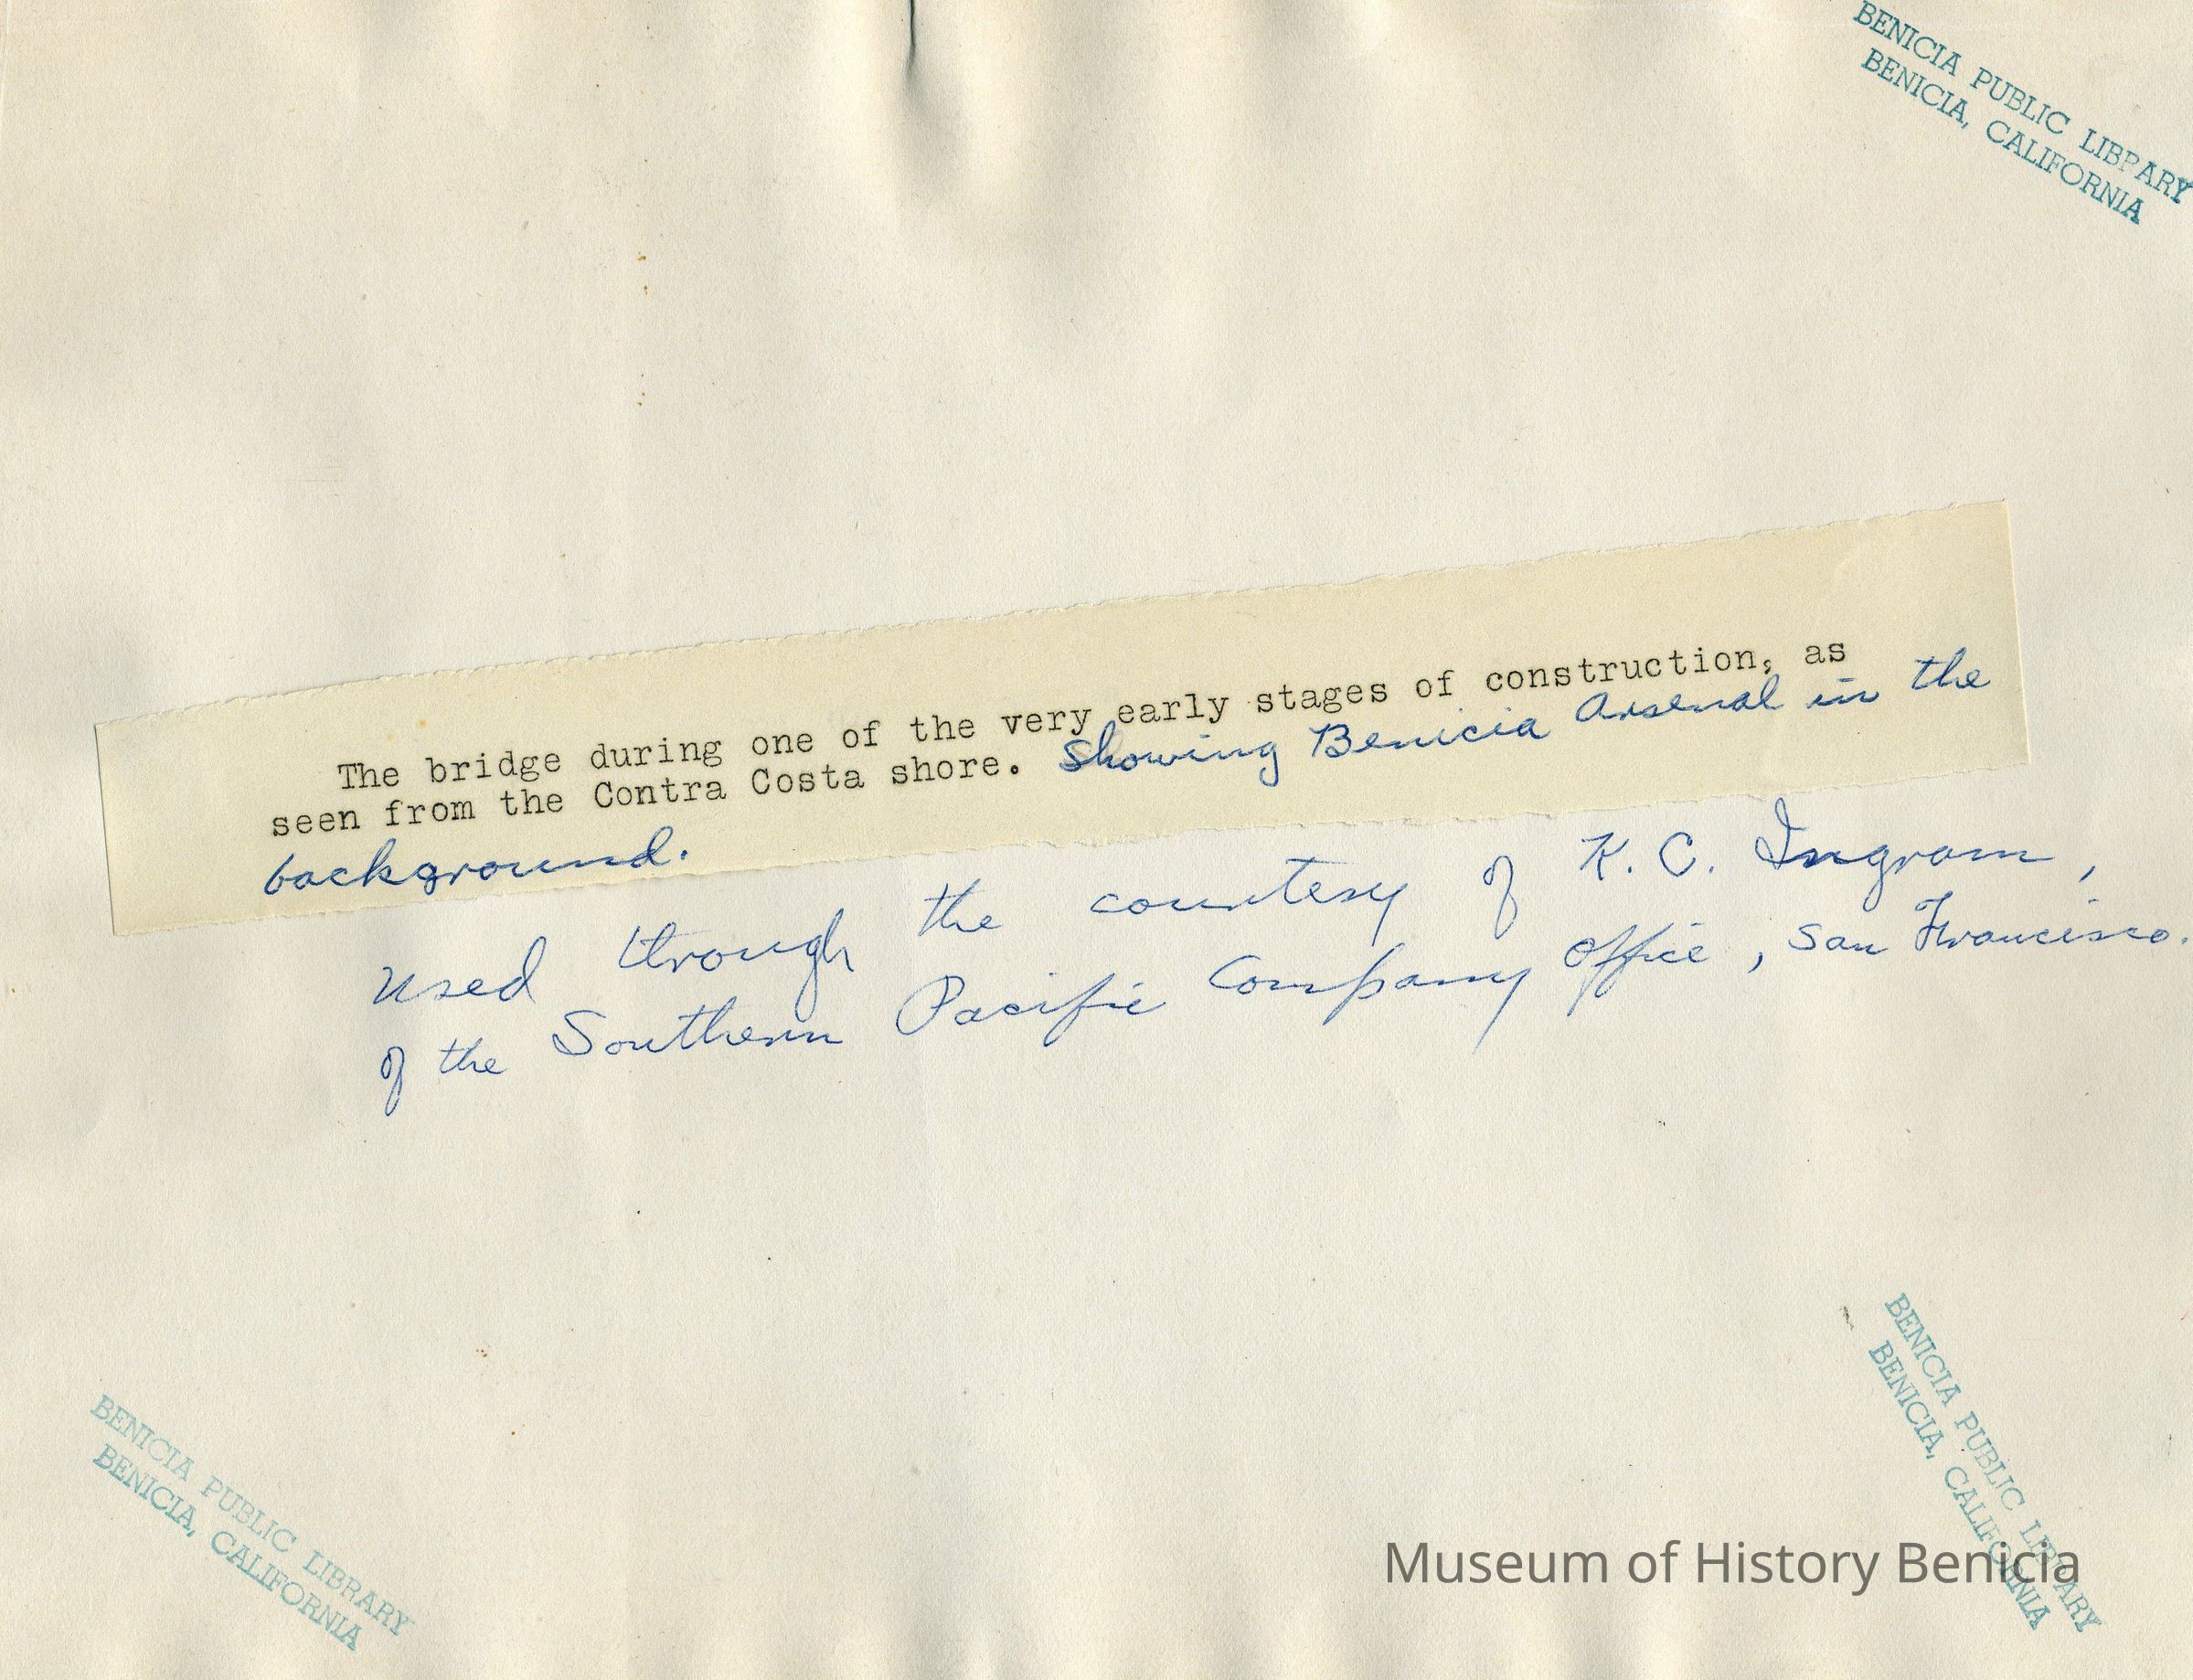 BENICIA PUBLIC LIBRARY
BENICIA, CALIFORNIA
The bridge during one of the very early stages of construction, as
seen from the Contra Costa shore. Showing Benicia Arsenal in the
background.
Used through the courtesy of K. C. Ingram,
of the Southern Pacific Company Office, San Francisco.
BENICIA PUBLIC LIBRARY
BENICIA, CALIFORNIA
BENICIA PUBLIC LIBRARY
BENICIA, CALIFORNIA
Museum of History Benicia